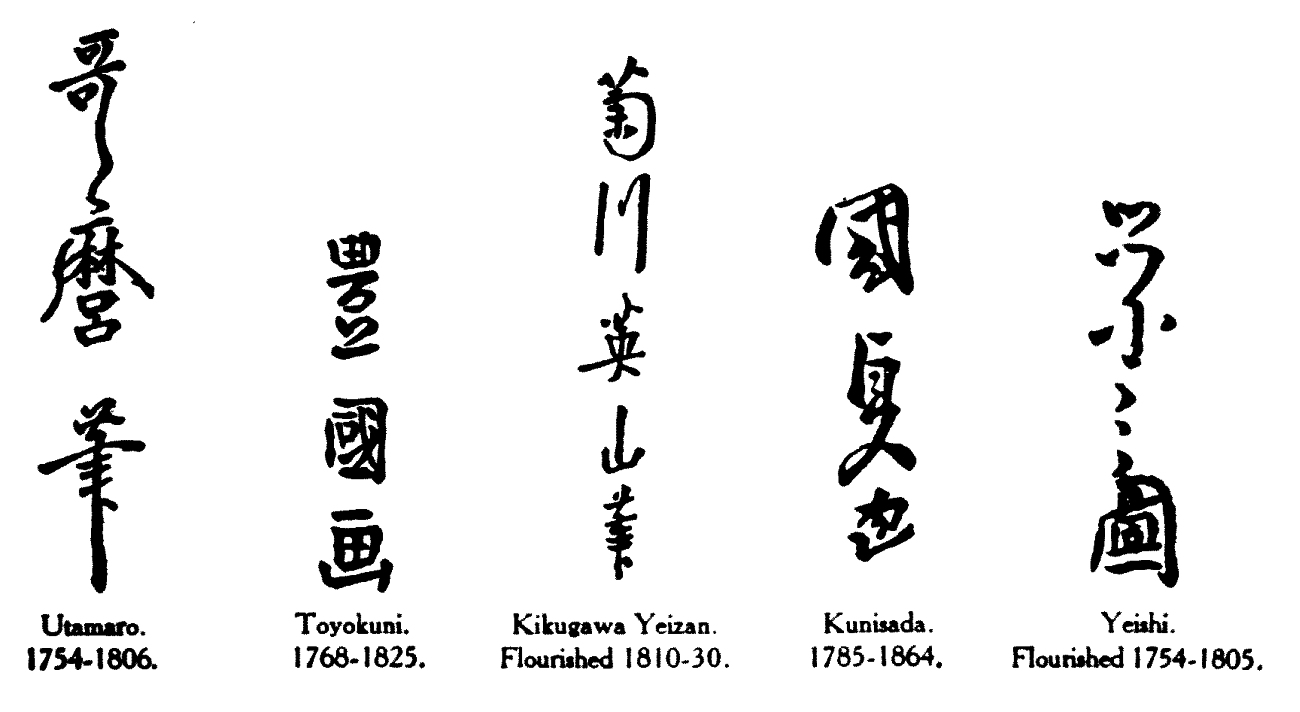 哥麿筆
Utamaro.
1754-1806.
豊國画
Toyokuni.
1768-1825.
菊川英山筆
Kikugawa Yeizan.
Flourished 1810-30.
國貞画
Kunisada.
1785-1864.
栄之圖
Yeishi.
Flourished 1754-1805.